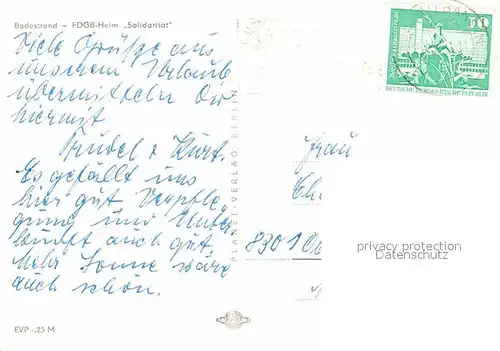 Badestrand – FDGB-Heim „Solidarität"
Viele Grüße aus
unserem Urlaub
übermitteln Dir
hiermit
Trudel & Kurt.
Es gefällt uns
hier gut. Verpfle-
gung und Unter-
kunft auch gut.
Mehr Sonne wäre
auch schön.
EVP -,25 M
PLANET-VERLAG BERLIN
10
DEUTSCHE DEMOKRATISCHE REPUBLIK
Frau
8301
privacy protection
Datenschutz